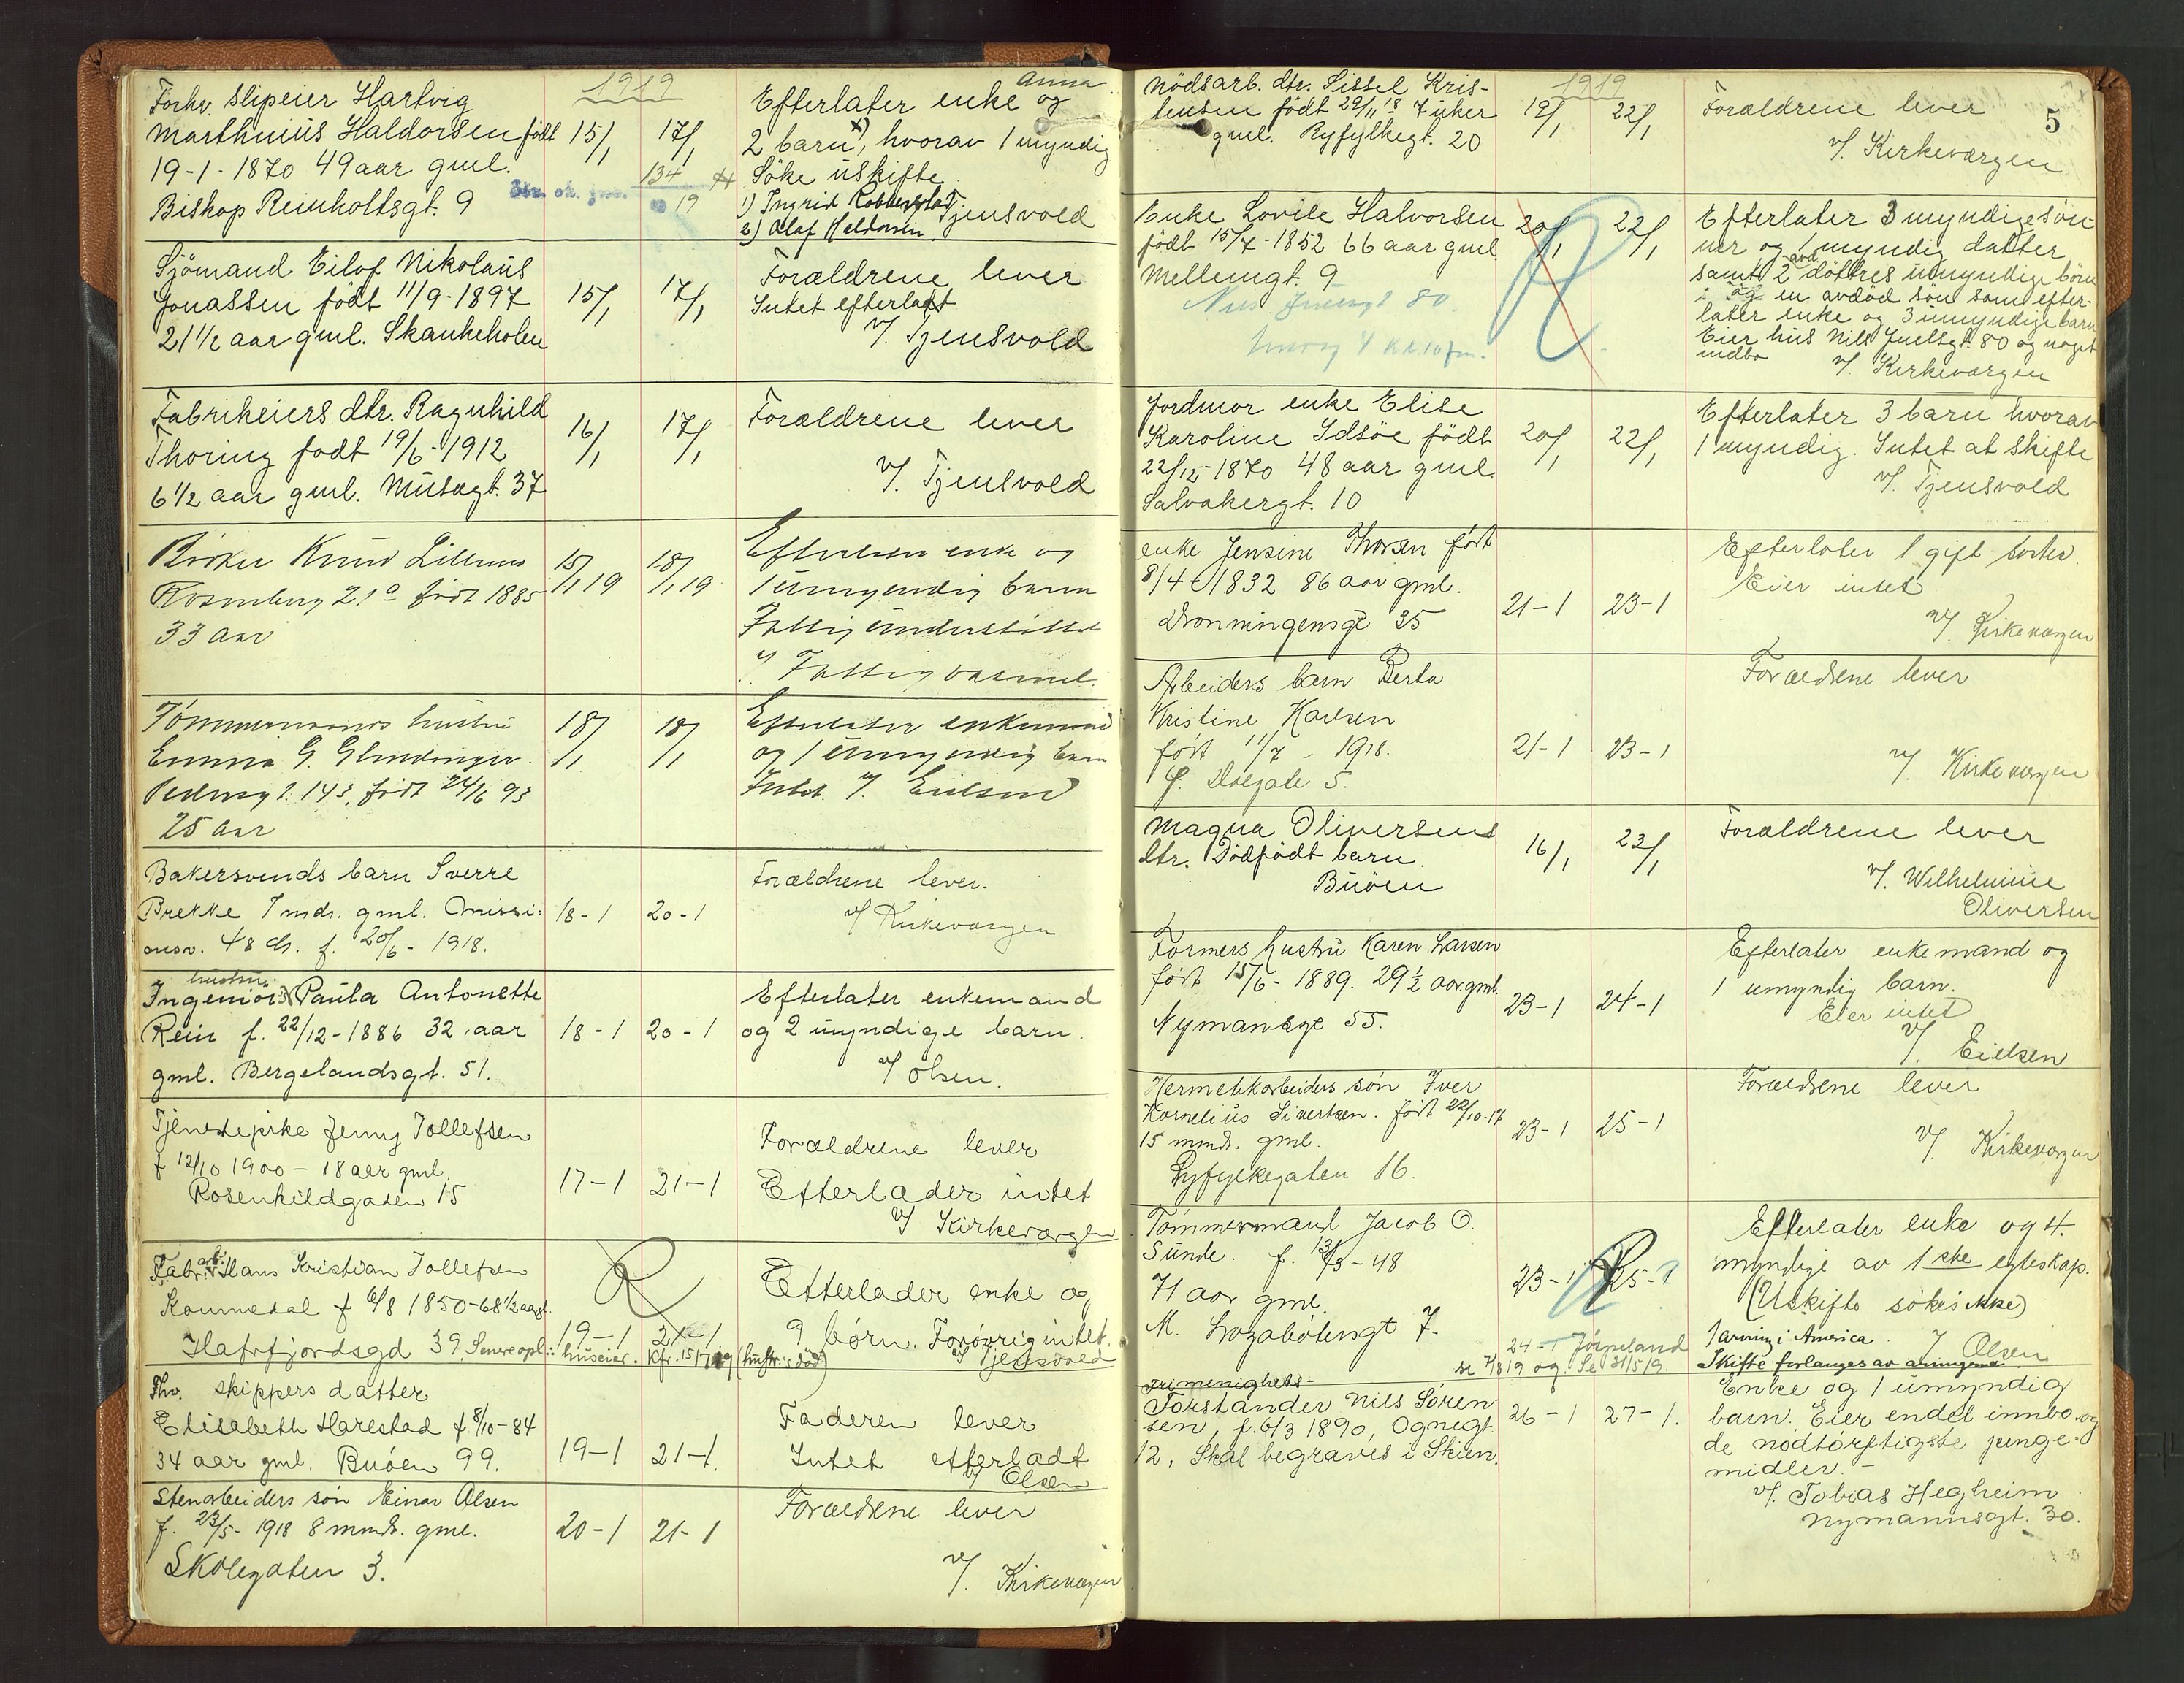 1919
Forhv. Slipeier Hartvig
Marthinius Haldorsen født
19-1-1870 49 aar gml.
Biskop Reinholtsgt. 9
15/1
17/1
134
19
Anna
Efterlater enke og
2 barn x), hvorav 1 myndig
Söke uskifte
1) Ingrid
2) Olaf Haldorsen Tjensvold
Sjömand Eilof Nikolaus
Jonassen født 11/9-1897
21 1/2 aar gml. Skankeholen
15/1
17/1
Forældrene lever
Intet efterladt
v/. Tjensvold
Fabrikeiers dtr. Ragnhild
Thoring født 19/6-1912
6 1/2 aar gml. Musegt. 37
16/1
17/1
Forældrene lever
v/. Tjensvold
Knud
Rosenberg 21a født 1885
33 aar
15/1 19
18/1 19
Efterlater enke og
1 umyndig barn
Fattigunderstöttet
v/ Fattigvæsenet.
Tömmermands hustru
Emma G.
Pedersgt. 143, født 24/6 93
25 aar
18/1
18/1
Efterlater enkemand
og 1 umyndig barn
Intet. v/. Eielsen
Bakersvends barn Sverre
Brekke 7 mdr. gml. Missi-
onsv. 48 ch. f. 20/6-1918.
18-1
20-1
Forældrene lever.
v/ Kirkeværgen
hustru
Ingeniörs Paula Antonette
Rein f. 22/12-1886 32 aar
gml. Bergelandsgt. 51.
18-1
20-1
Efterlater enkemand
og 2 umyndige barn.
v/ Olsen.
Tjenestepike Jenny Tollefsen
f 12/10 1900 - 18 aar gml.
Rosenkildgaden 15
17-1
21-1
Forældrene lever
Efterlader intet
v/ Kirkeværgen
Fabr. arb. Hans Kristian Tollefsen
f 6/8 1850-68 1/2 aar gl.
Hafrfjordsgd 39. Senere opl.: huseier.
R
19-1
21-1
Kfr. 15/7 19 (hustr. død)
Efterlader enke og
9 börn. Forøvrig intet.
v/ Tjensvold
Fhv. skippers datter
Elisabeth Harestad f 8/10-84
34 aar gml. Buöen 99.
19-1
21-1
Faderen lever
Intet efterladt
v/ Olsen
Stenarbeiders sön Einar Olsen
f. 23/5-1918 8 mmdr. gml.
Skolegaten 3.
20-1
21-1
Forældrene lever
v/. Kirkeværgen
1919
5
Nödsarb. dtr. Sissel Kris-
tensen født 29/11 18 7 uker
gml. Ryfylkegt. 20
19/1
22/1
Forældrene lever
v/. Kirkeværgen
Enke Lovise Halvorsen
født 15/7-1852 66 aar gml
Mellemgt. 9
Nils Juelsgt 80.
20/1
22/1
Efterlater 3 myndige sön-
ner og 1 myndig datter
samt 2 avd. döttres umyndige börn
og en avdöd sön som efter-
later enke og 3 umyndige barn
Eier hus Nils Juelsgt. 80 og noget
indbo
v/. Kirkeværgen
Jordmor enke Elise
Karoline Idsöe født
22/12-1870 48 aar gml.
Salvakergt. 10
20/1
22/1
Efterlater 3 barn hvorav
1 myndig. Intet at skifte
v/. Tjensvold
enke Jensine Thorsen født
8/4-1832 86 aar gml.
Dronningensgt 35
21-1
23-1
Efterlater 1 gift
Eier intet
v/ Kirkeværgen
Arbeiders barn Berta
Kristine Karlsen
født 11/7-1918.
Ø. Dalgate 5.
21-1
23-1
Forældrene lever
v/. Kirkeværgen
Magna Oliversens
dtr. Dödfödt barn.
Buöen
16/1
23/1
Forældrene lever
v/. Wilhelmine
Oliversen
Formers hustru Karen Larsen
født 15/6-1889. 29 1/2 aar gml.
Nymansgt 55.
23-1
24-1
Efterlater enkemand og
1 umyndig barn.
Eier intet
v/. Eielsen
Hermetikarbeiders sön Iver
Kornelius Sivertsen. født 22/10-17
15 mmdr. gml.
Ryfylkegaten 16.
23-1
25-1
Forældrene lever
v/. Kirkeværgen
Tömmermand Jacob O.
Sunde. f. 13/3-48
71 aar gml.
M. 7.
23-1
R
25-1
24-1 Jörpeland
se 7/3 19 og Se 31/5 19.
Efterlater enke og 4
myndige av 1ste egteskap.
(Uskifte sökes ikke)
1 arving i America.
v/ Olsen
Skifte forlanges av arvingerne.
Frimenighets-
Forstander Nils Sören-
sen, f. 6/3 1890, Ognegt.
12, Skal begraves i Skien.
26-1
27-1.
Enke og 1 umyndig
barn. Eier endel innbo og
de nödtörftigste penge-
midler.-
v/. Tobias Hegheim
Nymannsgt. 30.